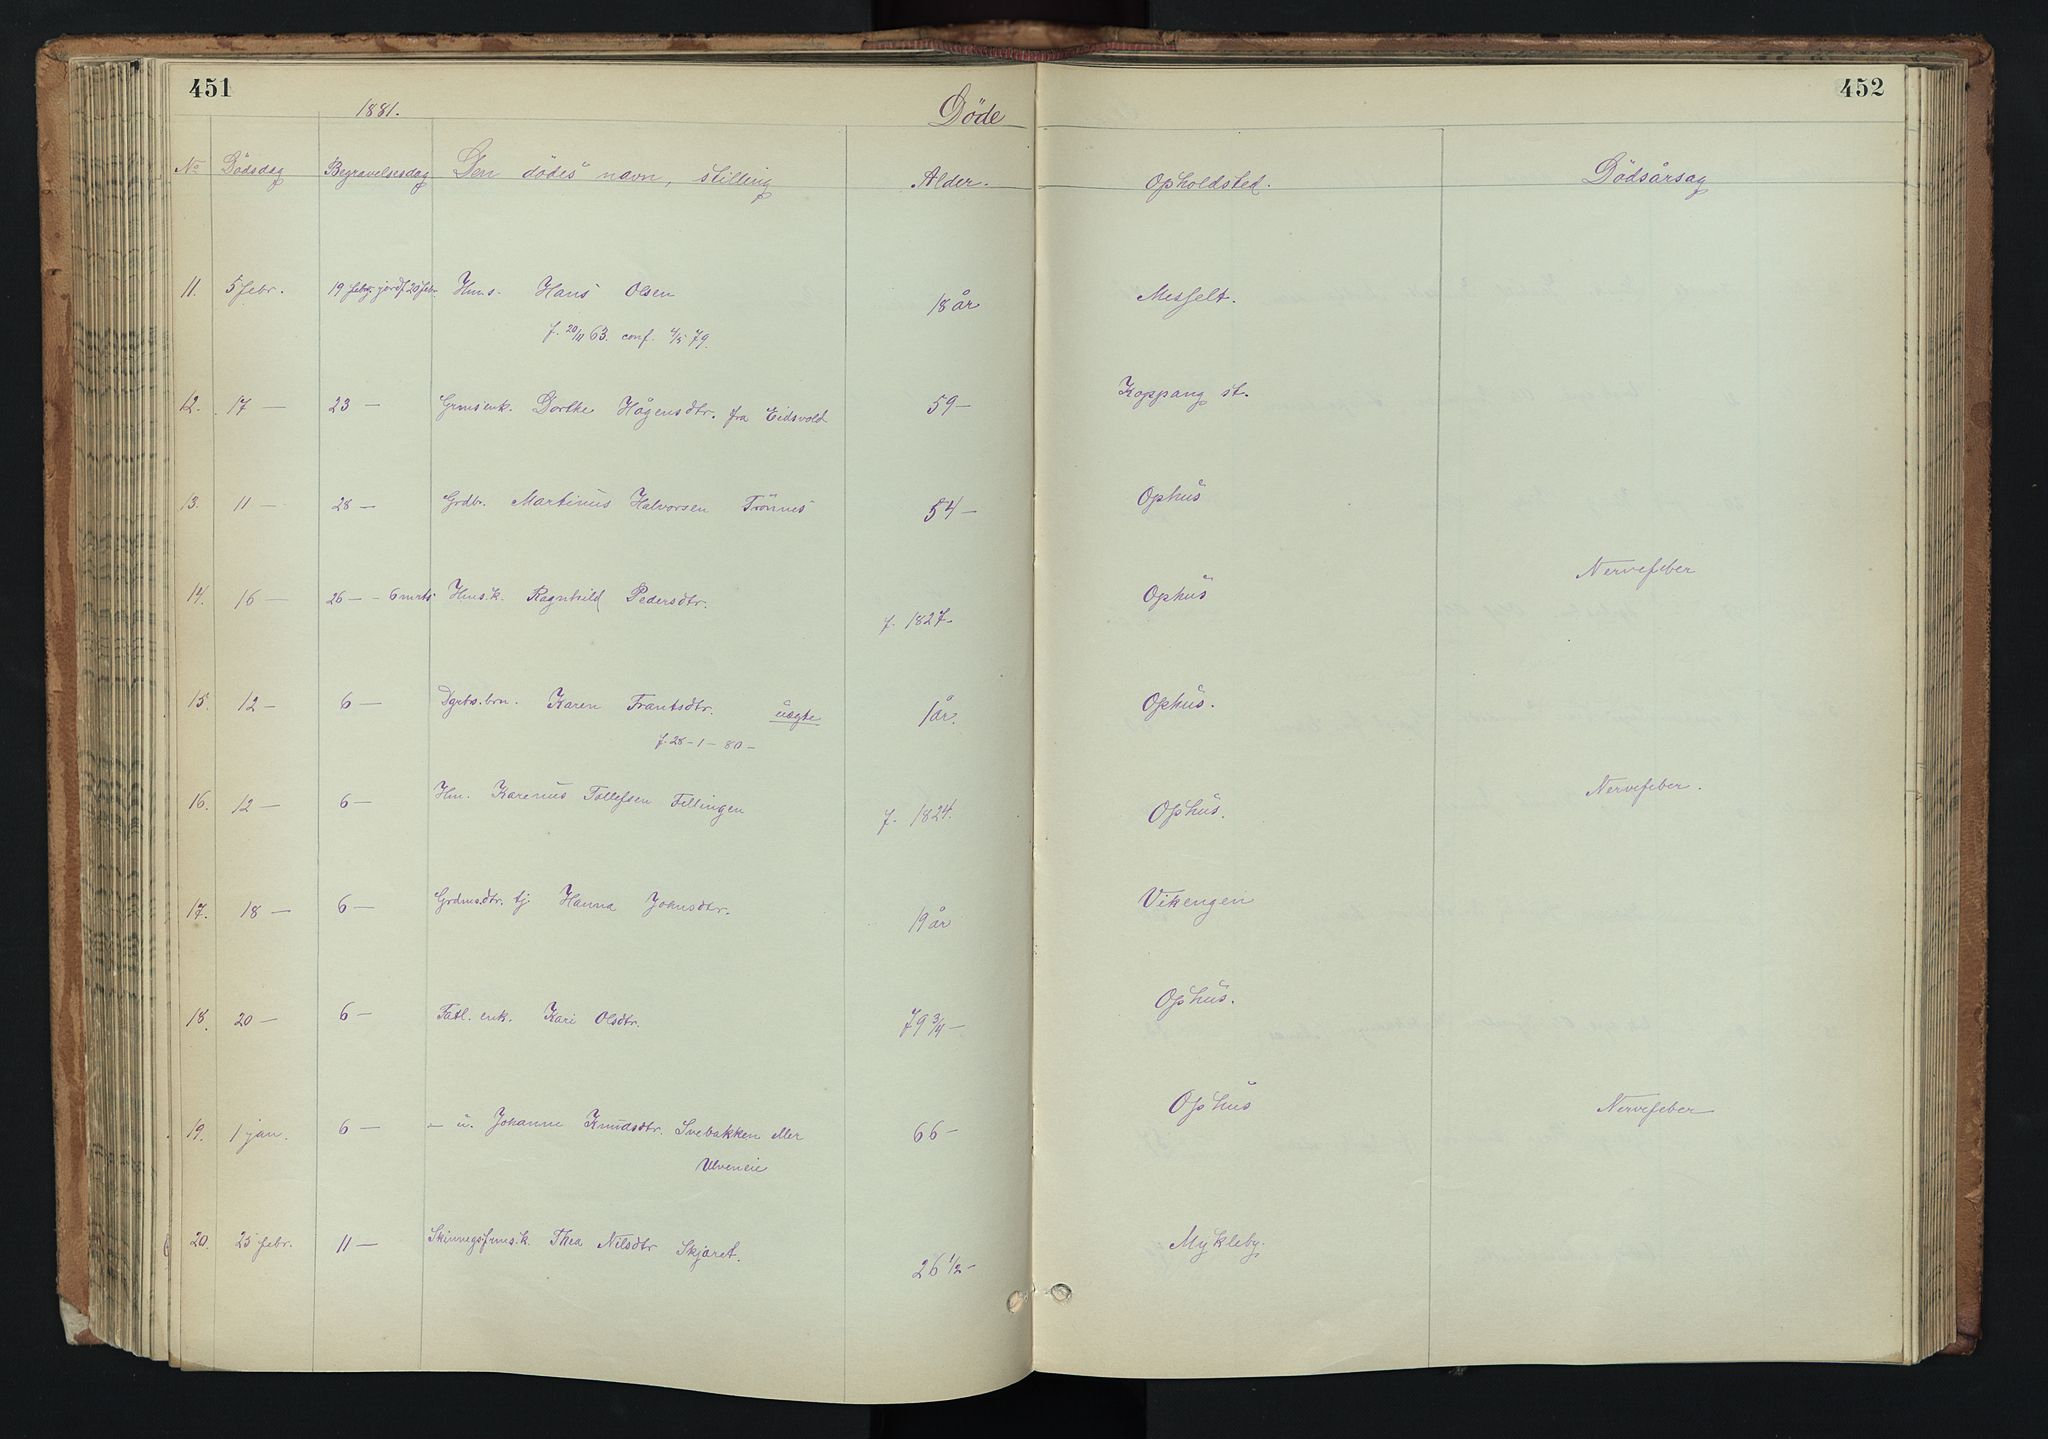 451
1881.
Döde
452
No Dödsdag Begravelsesdag Den dödes navn, stilling Alder. Opholdsted. Dödsårsag
11. 5 febr. 19 febr. jordf. 20 febr. Hms. Hans Olsen 18 år Messelt.
f. 20/11 63. conf. 4/5 79.
12. 17 — 23 — Grms enk. Dorthe Hågensdtr. fra Eidsvold 59 — Koppang st.
13. 11 — 28 — Grdbr. Martinus Halvorsen Trönnes 54 — Ophus
14. 16 — 26 — - 6 mrts Hms.k. Ragnhild Pedersdtr. f. 1827. Ophus Nervefeber
15. 12 — 6 — Dgrbs.brn. Karen Frantsdtr. uægte 1 år. Ophus.
f. 28 – 1 – 80 –
16. 12 — 6 — Hm. Karenus Tollefsen Fellingen f. 1824. Ophus. Nervefeber.
17. 18 — 6 — Grdms.dtr. tj. Hanna Johnsdtr. 19 år Vikengen
18. 20 — 6 — Fatl. enk. Kari Olsdtr. 79 3/4 — Ophus.
19. 1 jan. 6 — — u. Johanne Knudsdtr. Svebakken eller 66 — Ophus Nervefeber
Ulveneie
20. 25 febr. 11 — Skinnegsfrms.k. Thea Nilsdtr Skjæret. 26 1/2 — Mykleby.